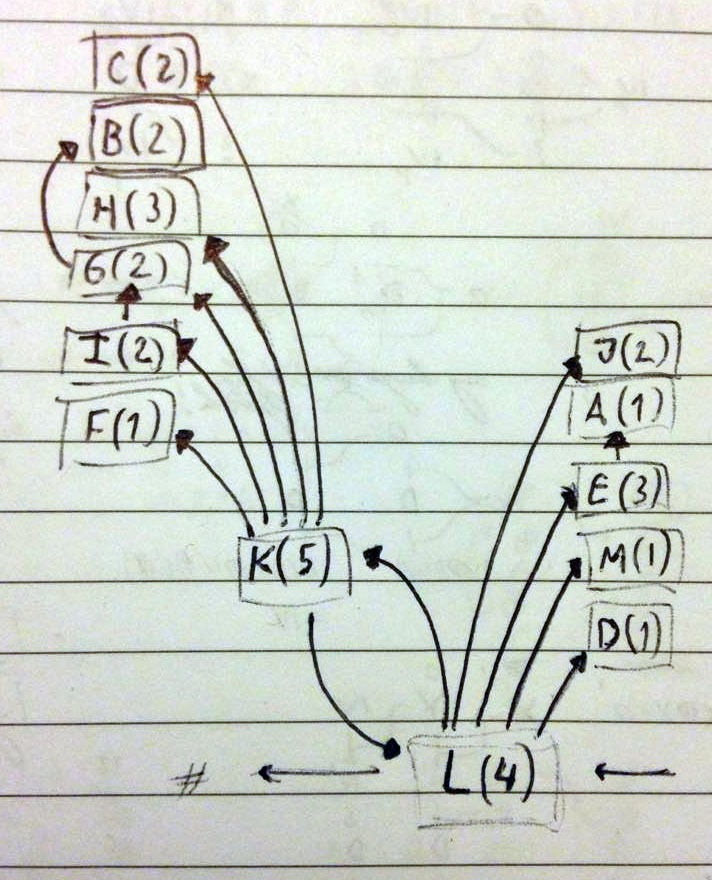 C(2)
B(2)
H(3)
G(2)
I(2)
F(1)
J(2)
A(1)
E(3)
K(5)
M(1)
D(1)
# L(4)